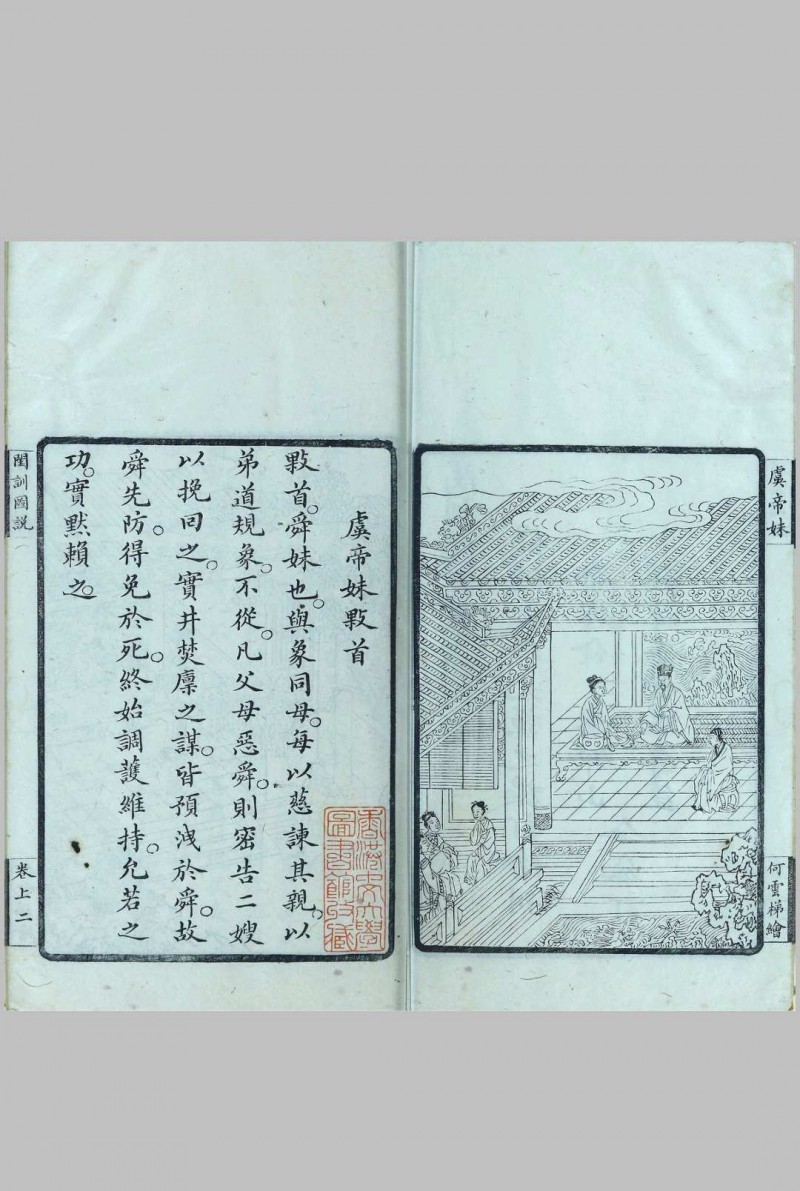 虞帝妹
何雲梯繪
虞帝妹敤首
敤首。舜妹也。與象同母。每以慈諫其親。以
弟道規象。不從。凡父母惡舜。則密告二嫂
以挽回之。實井焚廩之謀。皆預洩於舜。故
舜先防。得免於死。終始調護維持。允若之
功。實默賴之。
閨訓圖説
卷上二
香港中文大學
圖書館收藏